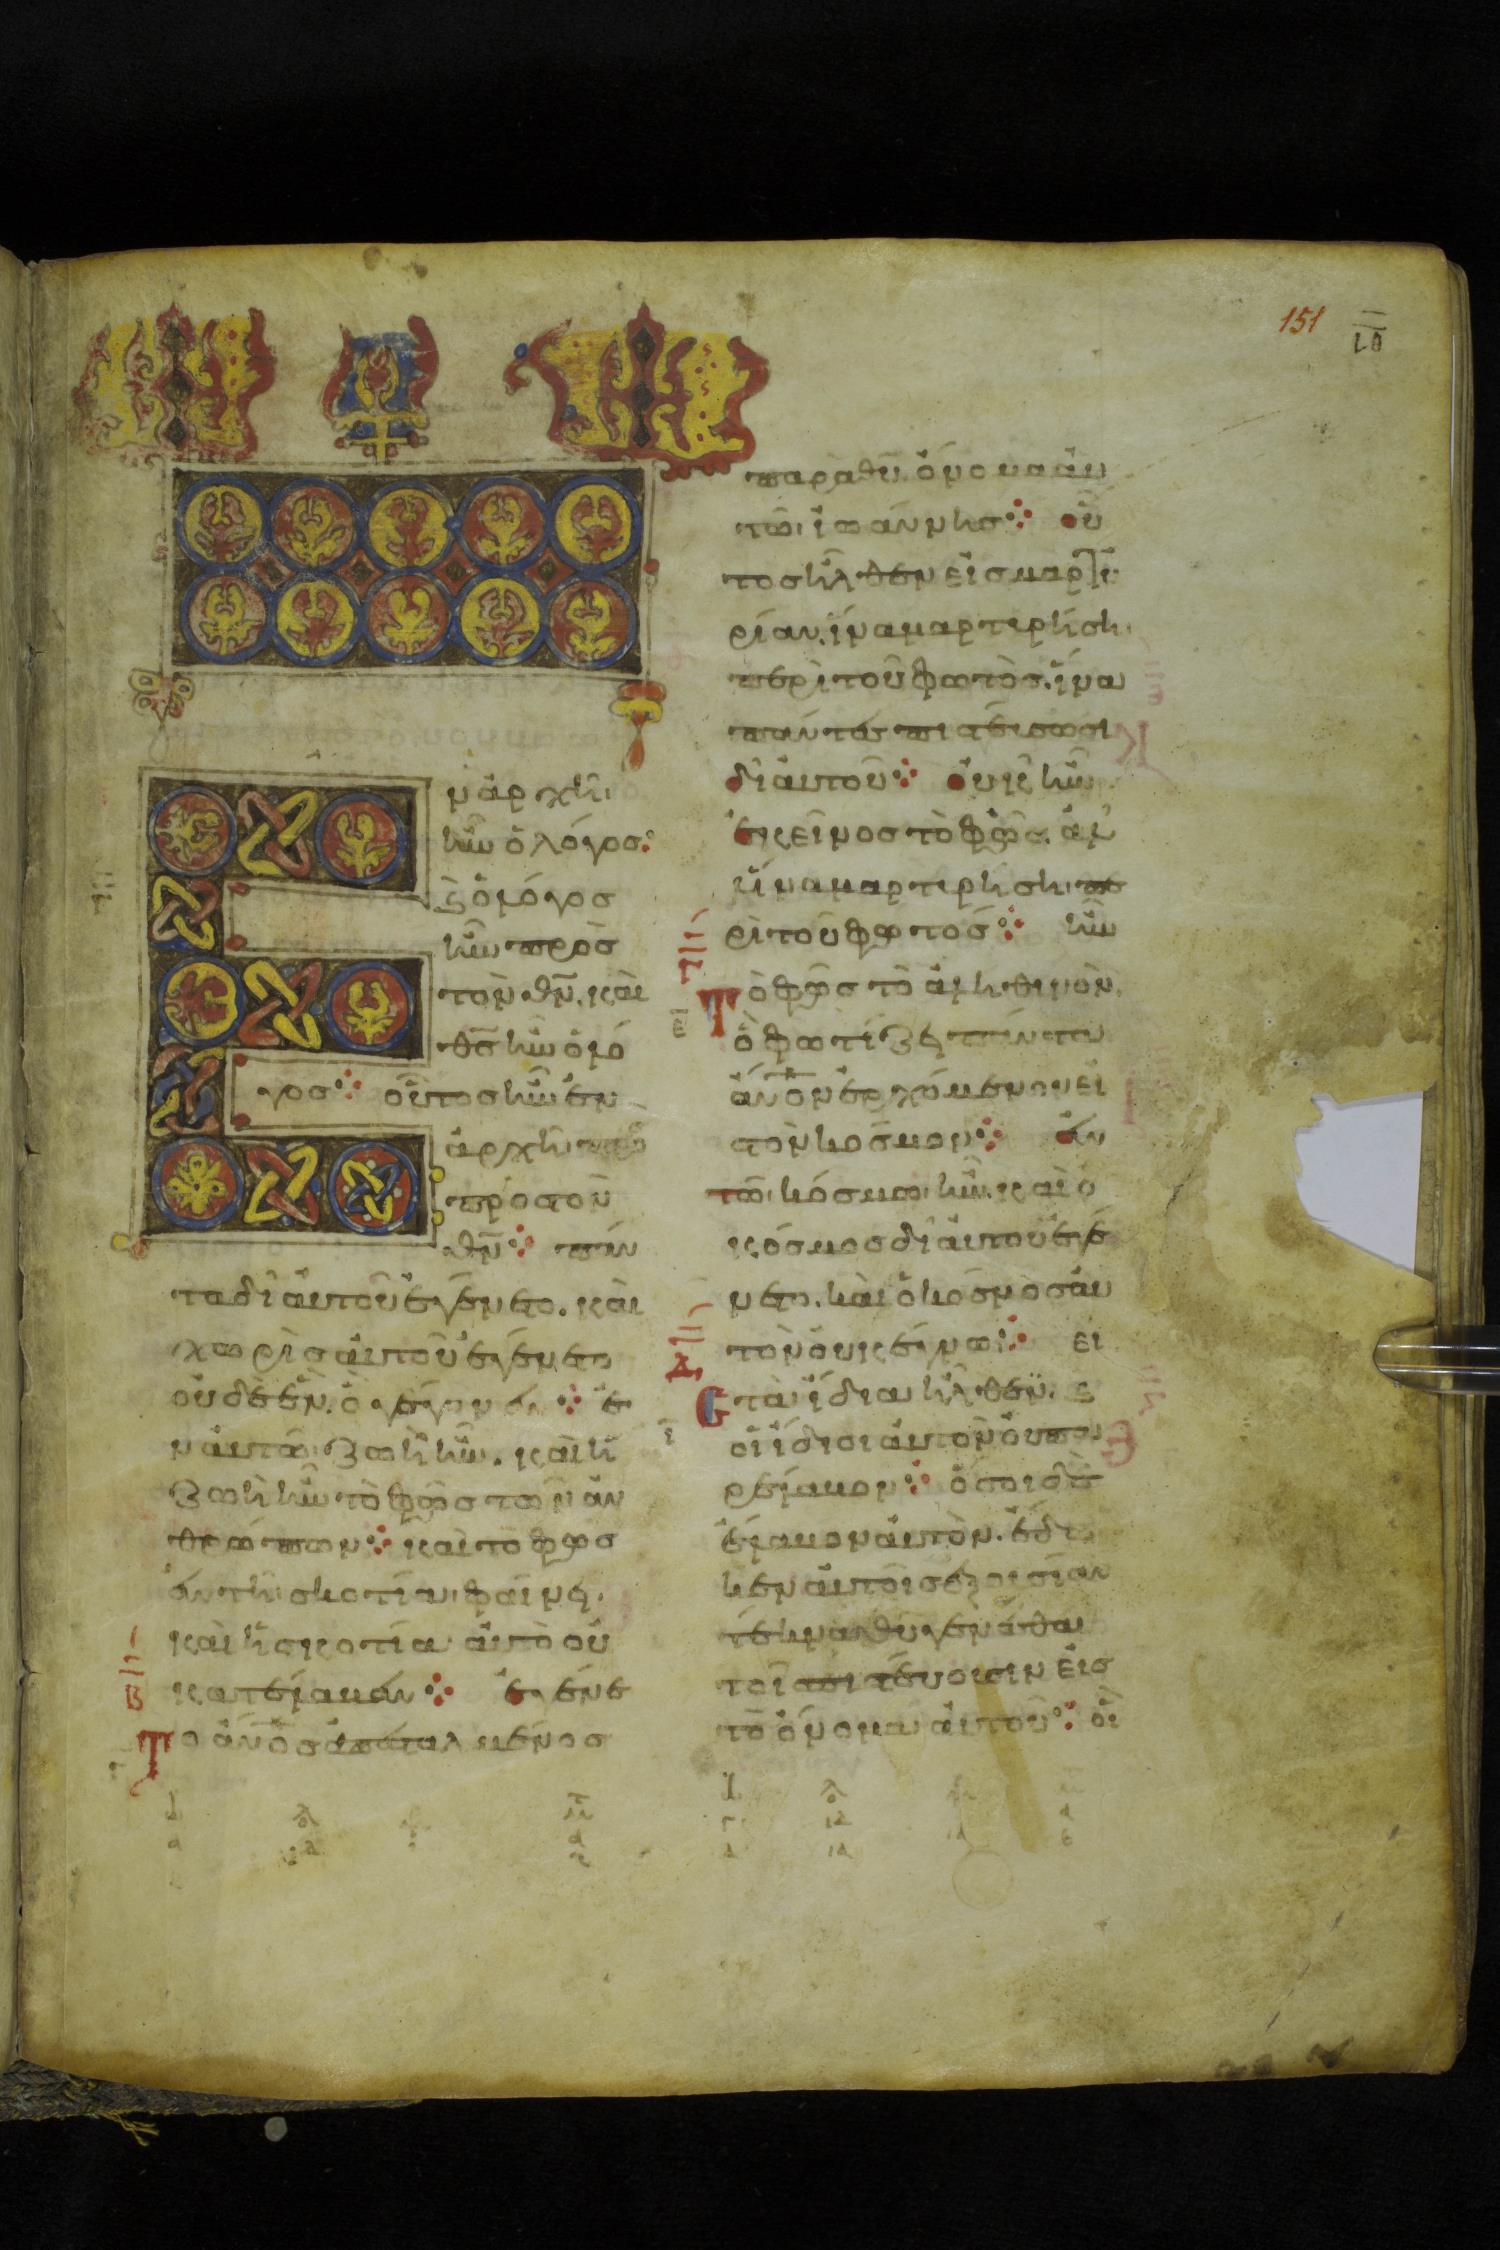 151
Ἐν ἀρχῆ
ἦν ὁ λόγος·
ϗ ὁ λόγος
ἦν πρὸς
τὸν θν̄. καὶ
θς̄ ἦν ὁ λό
γος· οὗτος ἦν ἐν
ἀρχῆ
πρὸς τὸν
θν̄· πάν
τα δι' αὐτοῦ ἐγένετο. καὶ
χωρὶς αὐτοῦ ἐγένετο
οὐδὲ ἕν. ὃ γέγονεν· ἐ
ν αὐτῶ ζωὴ ἦν. καὶ ἡ
ζωὴ ἦν τὸ φῶς τῶν ἀν
θρώπων· καὶ τὸ φῶς
ἐν τῆ σκοτία φαίνει.
καὶ ἡ σκοτία αὐτὸ οὐ
κατέλαβεν· ἐγένε
Β
Το ἄνος ἀπεσταλμένος
παρὰ θῡ. ὄνομα αὐ
τῶ ἰωάννης· οὗ
τος ἦλθεν εἰς μαρτι
ρίαν. ἵνα μαρτιρήση
περὶ τοῦ φωτὸς. ἵνα
πάντες πιστεύσωσι
δι' αὐτοῦ· οὐκ ἦν
ἐκεῖνος τὸ φῶς. ἀλ'
ἵνα μαρτιρήση πε
ρὶ τοῦ φωτός· ἦν
Τὸ φῶς τὸ ἀληθινὸν.
ὃ φωτίζει πάντα
ἄνον ἐρχόμενον εἰ
ς τὸν κόσμον· ἐν
τῶ κόσμω ἦν. καὶ ὁ
κόσμος δι' αὐτοῦ ἐγέ
νετο. καὶ ὁ κόσμος αὐ
τὸν οὐκ ἔγνω· εἰ
Δ
Ϲ τὰ ἴδια ἦλθεν. ϗ
οἱ ἴδιοι αὐτὸν οὐ πα
ρέλαβον· ὅσοι δὲ
ἔλαβον αὐτὸν. ἔδω
κεν αὐτοῖς ἐξουσίαν
τέκνα θῡ γενέσθαι
τοῖς πιστεύουσιν εἰς
τὸ ὄνομα αὐτοῦ· οἳ